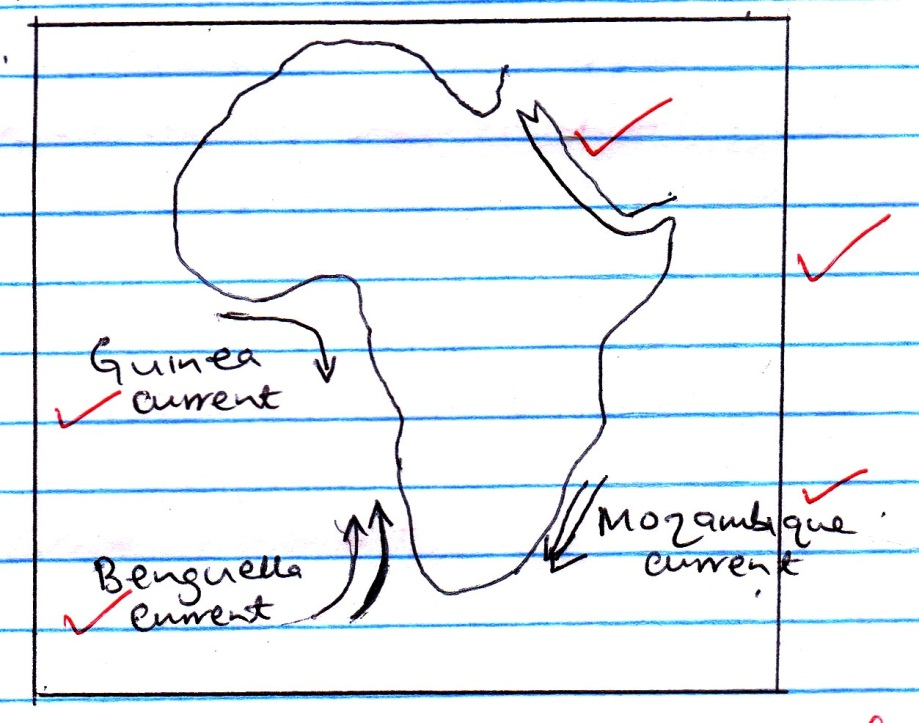 Guinea
current
Benguella
current
Mozambique
current